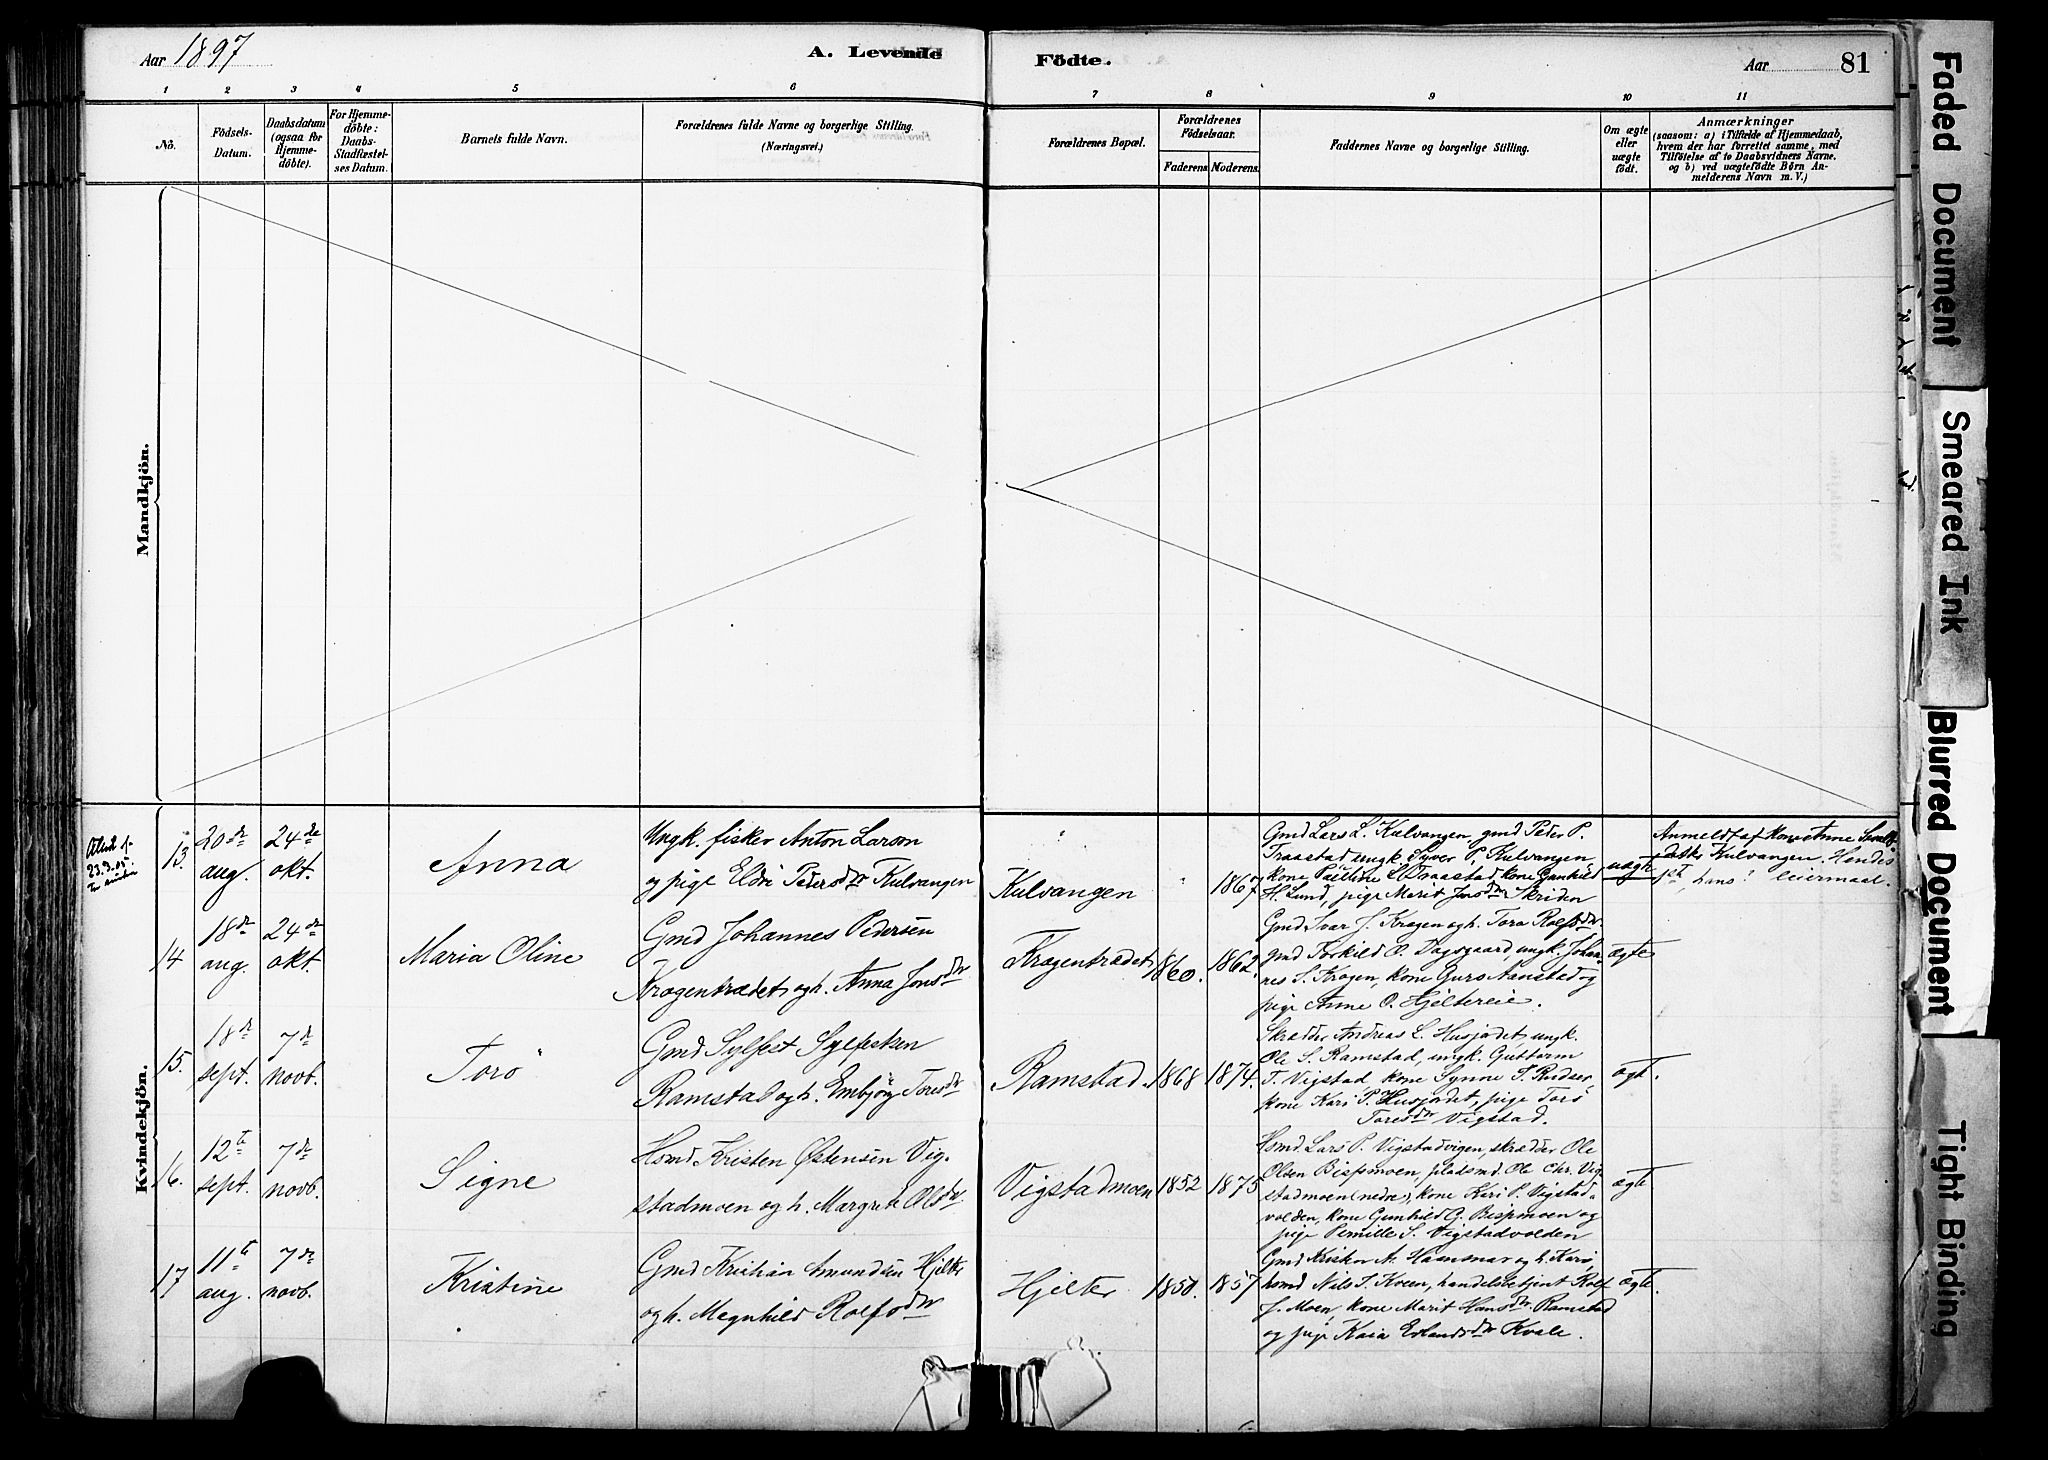 Aar 1897
A. Levende
Födte.
Aar 81
1 2 3 4 5 6 7 8 9 10 11
No.
Födsels-Datum.
Daabsdatum (ogsaa for Hjemmedöbte).
For Hjemmedöbte: Daabs-Stadfæstelses Datum.
Barnets fulde Navn.
Forældrenes fulde Navne og borgerlige Stilling.
(Næringsvei.)
Forældrenes Bopæl.
Forældrenes Födselsaar.
Faderens Moderens.
Faddernes Navne og borgerlige Stilling.
Om ægte eller uægte födt.
Anmærkninger
(saasom: a) i Tilfælde af Hjemmedaab,
hvem der har forrettet samme, med
Tilföielse af to Daabsvidners Navne.
og b) ved uægtefödte Börn An-
melderens Navn m. V.)
Mandkjön.
Kvindekjön.
13. 20de aug. 24de okt.
Anna
Ungk. fisker Anton Larsen
og pige Eldri Pedersdr Kulvangen
Kulvangen
1867
Gmd Lars L. Kulvangen, gmd Peder P.
Traastad, ungk. Syver P. Kulvangen
kone Pauline L. Traastad, kone Gunhild
H. Lund, pige Marit Jensdr Skriden
uægte
Anmeldt af kone Anne
Kulvangen. Hendes
1st, hans ? leiermaal.
14 18de aug. 24de okt.
Maria Oline
Gmd Johannes Pedersen
Kragentrædet og h. Anna Jonsdr
Kragentrædet
1860. 1862.
Gmd Ivar J. Kragen og h. Tora Rolfsdr.
gmd Torkild O. Dagsgaard, ungk. Johan-
nes S. Kragen, kone Guro Aanstad og
pige Anne O. Hjeltereie.
ægte
15. 18de sept. 7de novb.
Toro
Gmd Sylfest Sylfestsen
Ramstad og h. Embjør Toresdr
Ramstad. 1868 1874.
Skrædder Andreas L. Husjordet, ungk.
Ole S. Ramstad, ungk. Guttorm
T. Vigstad, kone Synne T. Rudser,
kone Kari P. Husjordet, pige Toro
Toresdr Vigstad.
ægt.
16. 12te sept. 7de novb.
Signe
Hsmd Kristen Østensen Vig-
stadmoen og h. Margrete Olsdr.
Vigstadmoen 1852 1875
Hsmd. Lars P. Vigstadvigen, skrædder Ole
Olsen Bispmoen, pladsmd. Ole Chr. Vig-
stadmoen (nedre), kone Kari P. Vigstad-
volden, kone Gunhild G. Bispmoen og
pige Pernille S. Vigstadvolden
ægte
17 11te aug. 7de novb.
Kristine
Gmd Kristian Amundsen Hjelter
og h. Magnhild Rolfsdr
Hjelter 1850. 1857
Gmd Kristen A. Haansnar og h. Kari,
hsmd Nils T. Kveen, handelsbetjent Rolf
J. Moen, kone Marit Hansdr. Ramstad
og pige Kaia Erlandsdr Kvale.
ægte.
Faded Document
Smeared Ink
Blurred Document
Tight Binding